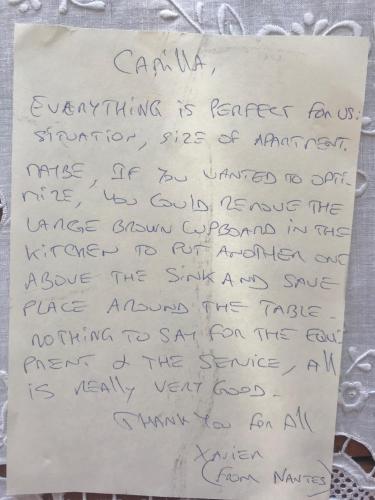 CAMILLA,
EVERYTHING IS PERFECT FOR US:
SITUATION, SIZE OF APARTMENT.
MAYBE, IF YOU WANTED TO OPTI-
MIZE, YOU COULD REMOVE THE
LARGE BROWN CUPBOARD IN THE
KITCHEN TO PUT ANOTHER ONE
ABOVE THE SINK AND SAVE
PLACE AROUND THE TABLE.
NOTHING TO SAY FOR THE EQUI-
PMENT & THE SERVICE, All
IS REALLY VERY GOOD.
THANK YOU FOR All
XAVIER
(FROM NANTES)